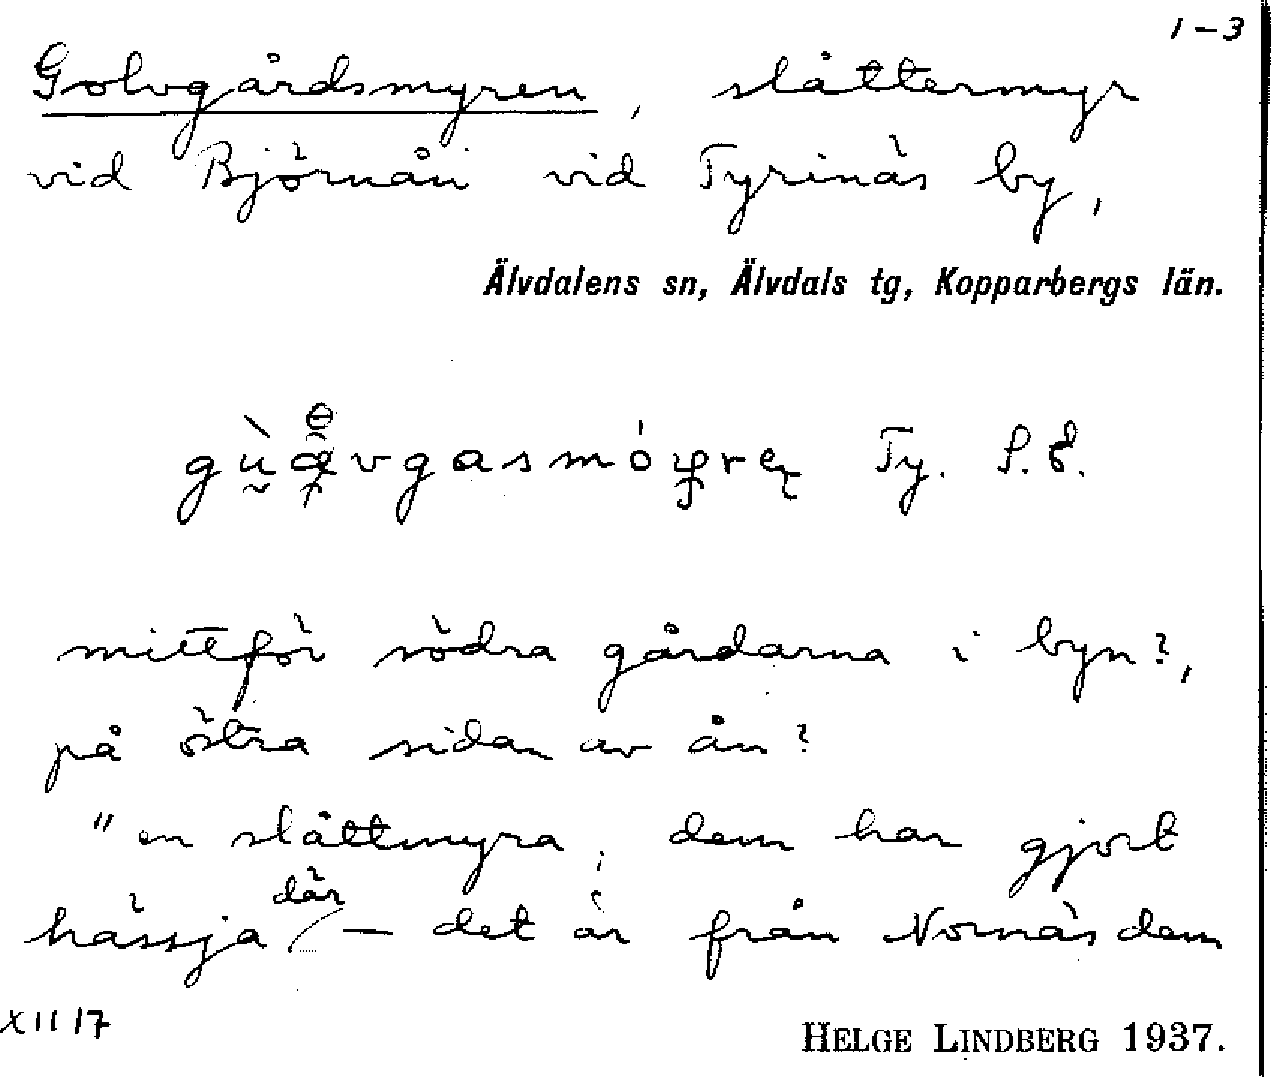 1-3
Golvgårdsmyren, slåttermyr
vid Björnån vid Tyrinäs by,
Älvdalens sn, Älvdals tg, Kopparbergs län.
Ty. P.E.
mittför södra gårdarna i byn?,
på östra sidan av ån?
"en slåttmyra, dem har gjort
hässja där — det är från Nornäs dem
XII 17
HELGE LINDBERG 1937.